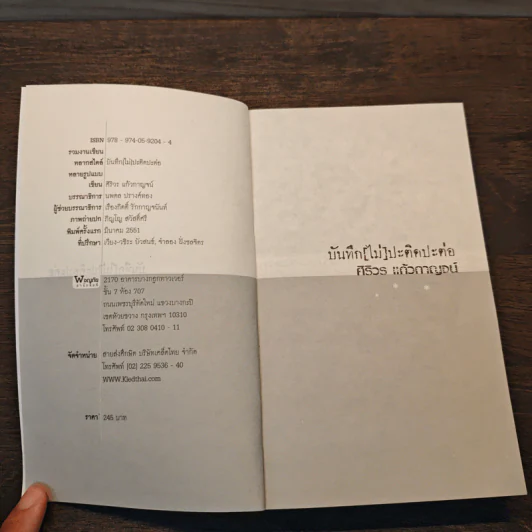 ISBN 978 - 974-05-9204 - 4
รวมงานเขียน
หลากสไตล์ บันทึก[ไม่]ปะติดปะต่อ
หลายรูปแบบ
เขียน ศิริวร แก้วกาญจน์
บรรณาธิการ นพดล ปรางค์ทอง
ผู้ช่วยบรรณาธิการ เรืองกิตติ์ รักกาญจนันท์
ภาพถ่ายปก
พิมพ์ครั้งแรก มีนาคม 2551
ที่ปรึกษา เวียง-วชิระ บัวสนธ์, จำลอง ฝั่งชลจิตร
ผจญภัย
สำนักพิมพ์
2170 อาคารบางกอกทาวเวอร์
ชั้น 7 ห้อง 707
ถนนเพชรบุรีตัดใหม่ แขวงบางกะปิ
เขตห้วยขวาง กรุงเทพฯ 10310
โทรศัพท์ 02 308 0410 - 11
จัดจำหน่าย สายส่งศึกษิต บริษัทเคล็ดไทย จำกัด
โทรศัพท์ (02) 225 9536 - 40
WWW.Kledthai.com
ราคา 245 บาท
บันทึก[ไม่]ปะติดปะต่อ
ศิริวร แก้วกาญจน์